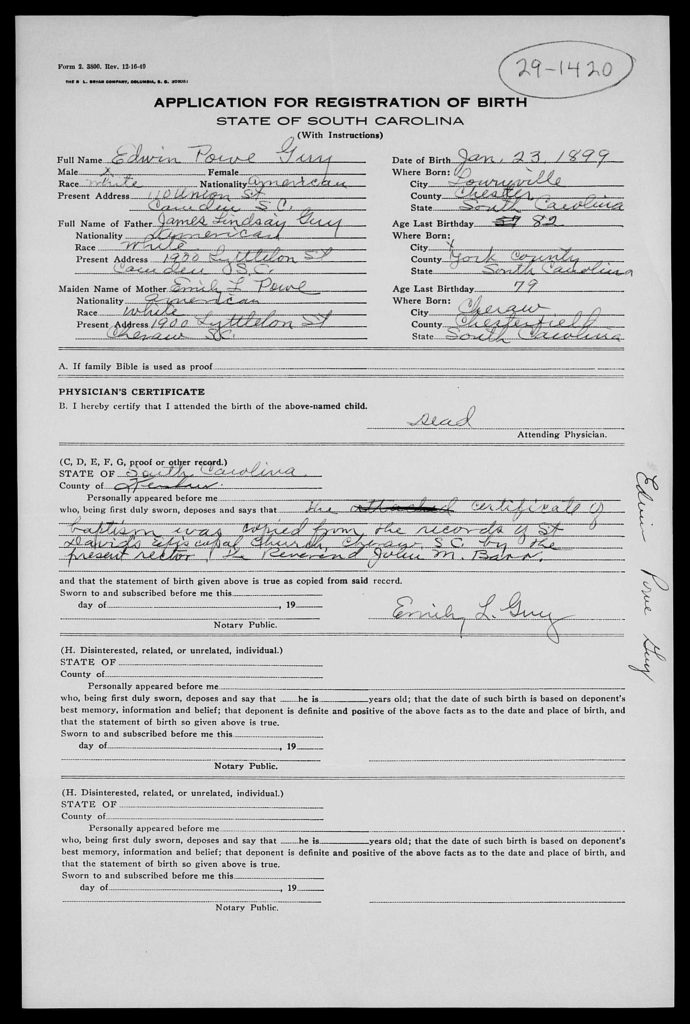 Form 2. 3800. Rev. 12-16-49
29-1420
THE R. L. BRYAN COMPANY, COLUMBIA, S. C.
APPLICATION FOR REGISTRATION OF BIRTH
STATE OF SOUTH CAROLINA
(With Instructions)
Full Name Edwin Powe Guy Date of Birth Jan. 23, 1899
Male x Female Where Born:
Race White Nationality American City Lowryville
Present Address Union St County Chester
Camden S.C. State South Carolina
Full Name of Father James Lindsay Guy Age Last Birthday 82
Nationality American Where Born:
Race White City x
Present Address 1900 Lyttleton St County York County
Camden S.C. State South Carolina
Maiden Name of Mother Emily L Powe Age Last Birthday 79
Nationality American Where Born:
Race White City Cheraw
Present Address 1900 Lyttleton St County Chesterfield
Cheraw S.C. State South Carolina
A. If family Bible is used as proof
PHYSICIAN'S CERTIFICATE
B. I hereby certify that I attended the birth of the above-named child.
dead
Attending Physician.
(C, D, E, F, G, proof or other record.)
STATE OF South Carolina
County of Kershaw
Personally appeared before me
who, being first duly sworn, deposes and says that the attached certificate of
baptism was copied from the records of St
David's Episcopal Church, Cheraw, S.C. by the
present rector, The Reverend M. Barr.
and that the statement of birth given above is true as copied from said record.
Sworn to and subscribed before me this
day of , 19 Emily L. Guy
Notary Public.
Edwin Powe Guy
(H. Disinterested, related, or unrelated, individual.)
STATE OF
County of
Personally appeared before me
who, being first duly sworn, deposes and say that he is years old; that the date of such birth is based on deponent's
best memory, information and belief; that deponent is definite and positive of the above facts as to the date and place of birth, and
that the statement of birth so given above is true.
Sworn to and subscribed before me this
day of , 19
Notary Public.
(H. Disinterested, related, or unrelated, individual.)
STATE OF
County of
Personally appeared before me
who, being first duly sworn, deposes and say that he is years old; that the date of such birth is based on deponent's
best memory, information and belief; that deponent is definite and positive of the above facts as to the date and place of birth, and
that the statement of birth so given above is true.
Sworn to and subscribed before me this
day of , 19
Notary Public.